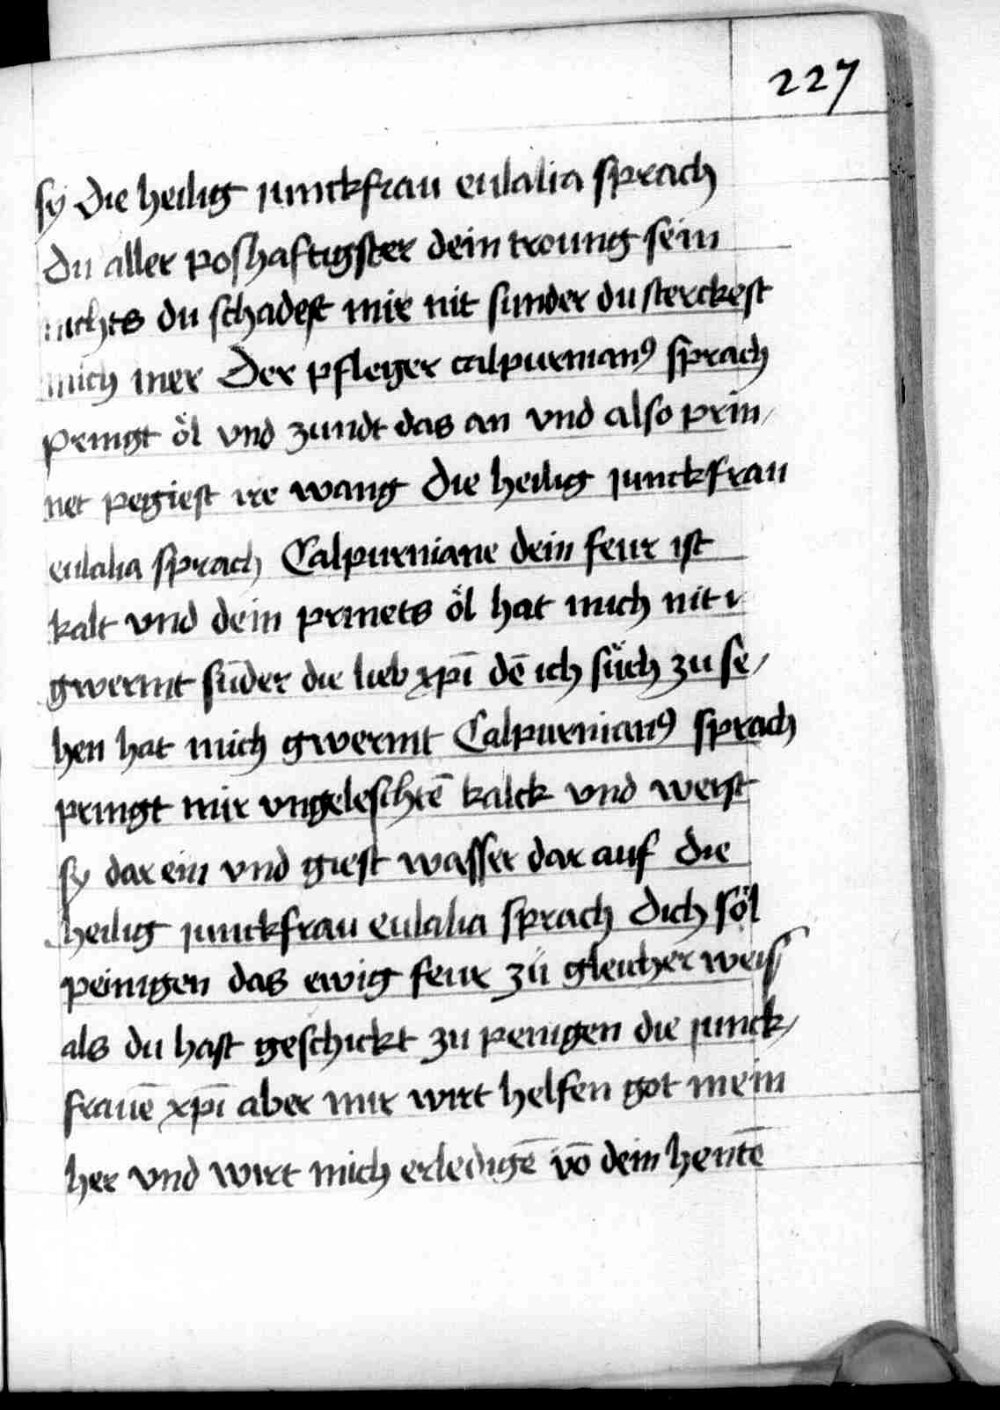 227
sÿ Die heilig junckfrau eulalia sprach
Du aller poshaftigster dein troung sein
nichts du schadest mir nit sunder du sterckest
mich mer Der pfleger calpurnianꝰ sprach
pringt öl vnd zundt das an vnd also prin/
net pegiest ire wang Die heilig junckfrau
eulalia sprach Calpurniane dein feur ist
kalt vnd dein prinets öl hat mich nit
gwermt sūder die lieb xp̄i dē ich süch zu se/
hen hat mich gwermt Calpurnianꝰ sprach
pringt mir vngeleschtē kalck vnd werft
sÿ dar ein vnd giest wasser dar auf Die
heilig junckfrau eulalia sprach Dich söl
peinigen das ewig feur zü gleicher weiß
als du hast geschickt zu penigen die junck/
frauē xp̄i aber mir wirt helfen got mein
her vnd wirt mich erledigē vō dein hentē